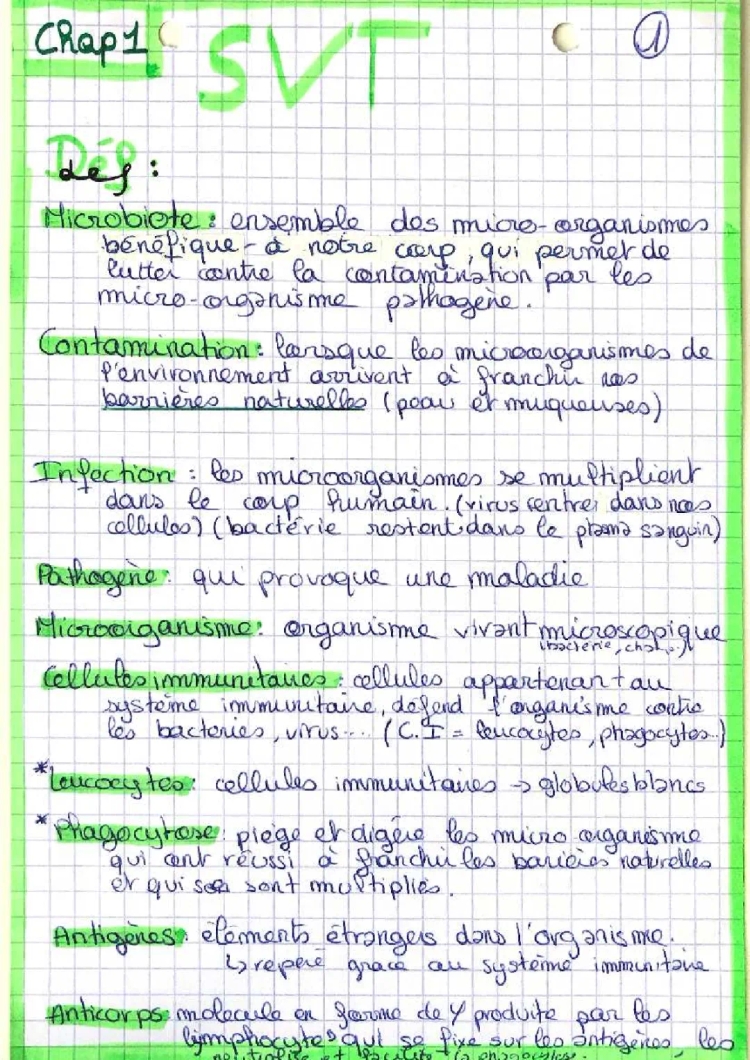 Chap 1
SVT
1
Déf :
Microbiote : ensemble des micro-organismes
bénéfique - à notre corp, qui permet de
lutter contre la contamination par les
micro-organisme pathogène.
Contamination : lorsque les microorganismes de
l'environnement arrivent à franchir nos
barrières naturelles (peau et muqueuses)
Infection : les microorganismes se multiplient
dans le corp humain. (virus rentrer dans nos
cellules) (bactérie restent dans le plasma sanguin)
Pathogène : qui provoque une maladie
Microorganisme : organisme vivant microscopique
(bactérie,
Cellules immunitaires : cellules appartenant au
système immunitaire, défend l'organisme contre
les bacteries, virus... (C.I = leucocytes, phagocytes..)
*Leucocytes : cellules immunitaires → globules blancs
*Phagocytose : piège et digère les micro organisme
qui ont réussi à franchir les barières naturelles
et qui se sont multipliés.
Antigènes : élements étrangers dans l'organisme.
↳ repéré grace au système immunitaire
Anticorps : molecule en forme de Y produite par les
lymphocytes qui se fixe sur les antigènes, les
neutralise et facilite la phagocytose.